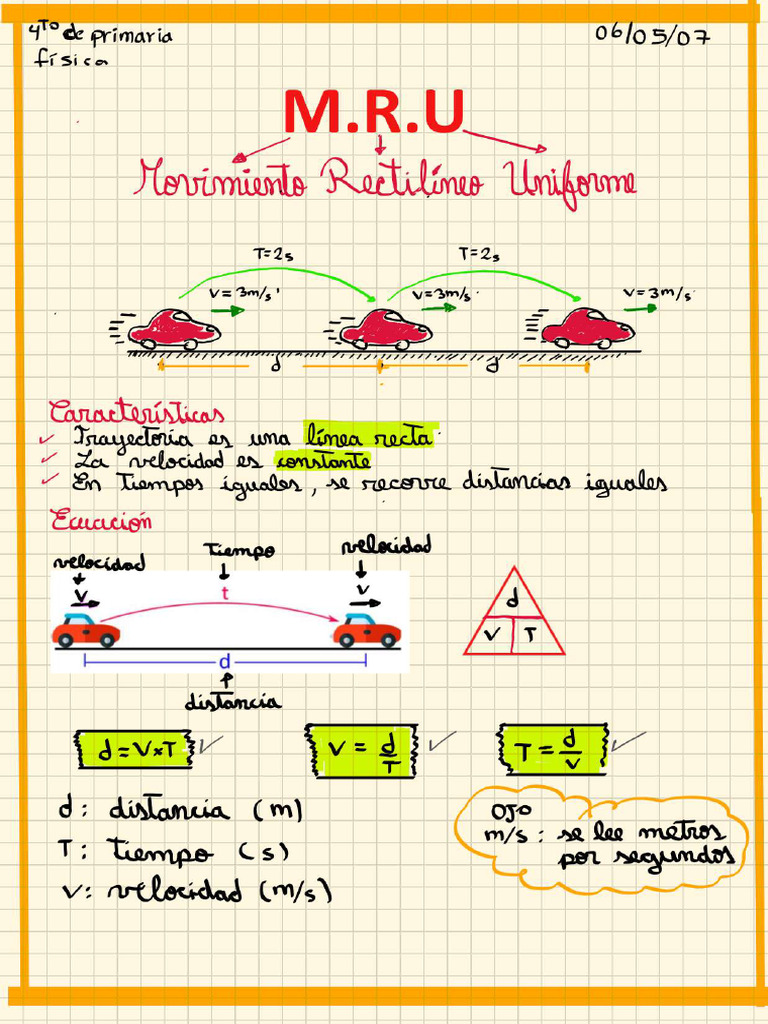 4to de primaria
física
06/05/07
M.R.U
Movimiento Rectilíneo Uniforme
T=2s T=2s
V=3m/s V=3m/s V=3m/s
d d
Características
✓ Trayectoria es una línea recta
✓ La velocidad es constante
✓ En tiempos iguales, se recorre distancias iguales
Ecuación
velocidad tiempo velocidad
V t V
d
distancia
d
V T
d=V×T ✓ V = d/T ✓ T = d/V ✓
d: distancia (m)
T: tiempo (s)
V: velocidad (m/s)
OJO
m/s: se lee metros
por segundos